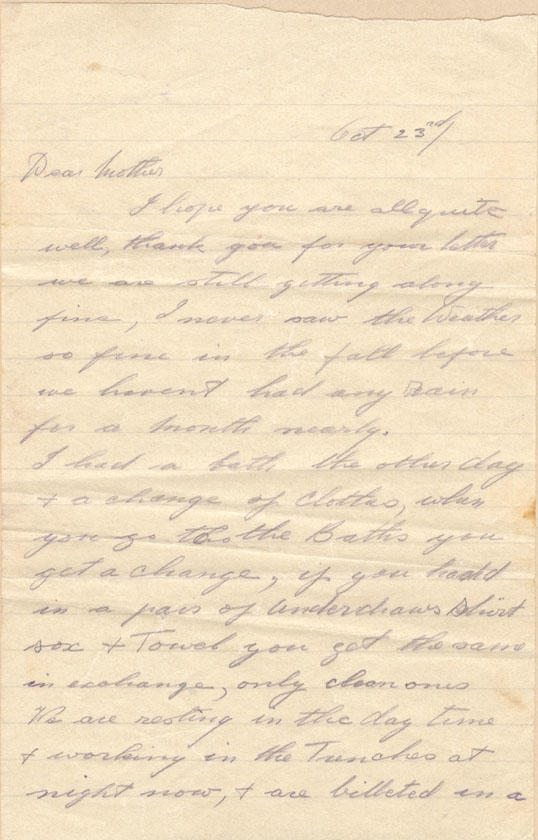 Oct 23rd/
Dear Mother
I hope you are all quite
well, thank you for your letter
we are still getting along
fine, I never saw the Weather
so fine in the fall before
we havent had any Rain
for a month nearly.
I had a bath the other day
+ a change of Clothes, when
you go to the Baths you
get a change, if you hand
in a pair of Underdraws Shirt
sox + Towel you get the same
in exchange, only clean ones
We are resting in the day time
+ working in the Trenches at
night now, + are billeted in a